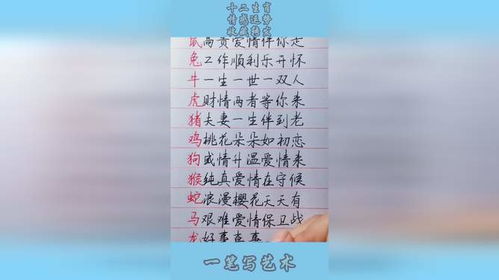 十二生肖
情感运势
收藏转发
鼠高贵爱情伴你走
兔工作顺利乐开怀
牛一生一世一双人
虎财情两者等你来
猪夫妻一生伴到老
鸡桃花朵朵如初恋
狗感情升温爱情来
猴纯真爱情在守候
蛇浪漫樱花天天有
马艰难爱情保卫战
龙好事
一笔写艺术